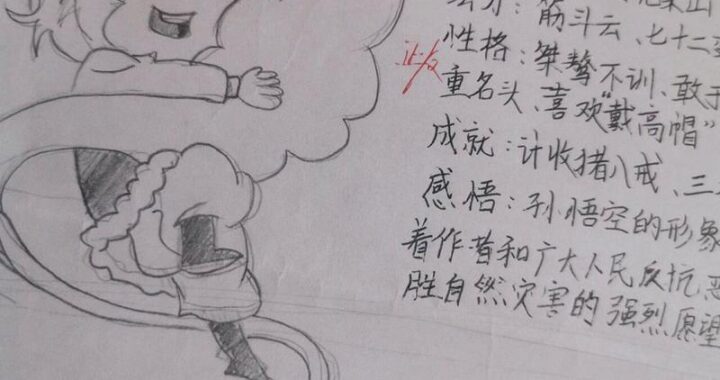 筋斗云、七十二
性格：桀骜不训、敢于
重名头、喜欢“戴高帽”
成就：计收猪八戒、三
感悟：孙悟空的形象
着作者和广大人民反抗恶
胜自然灾害的强烈愿望